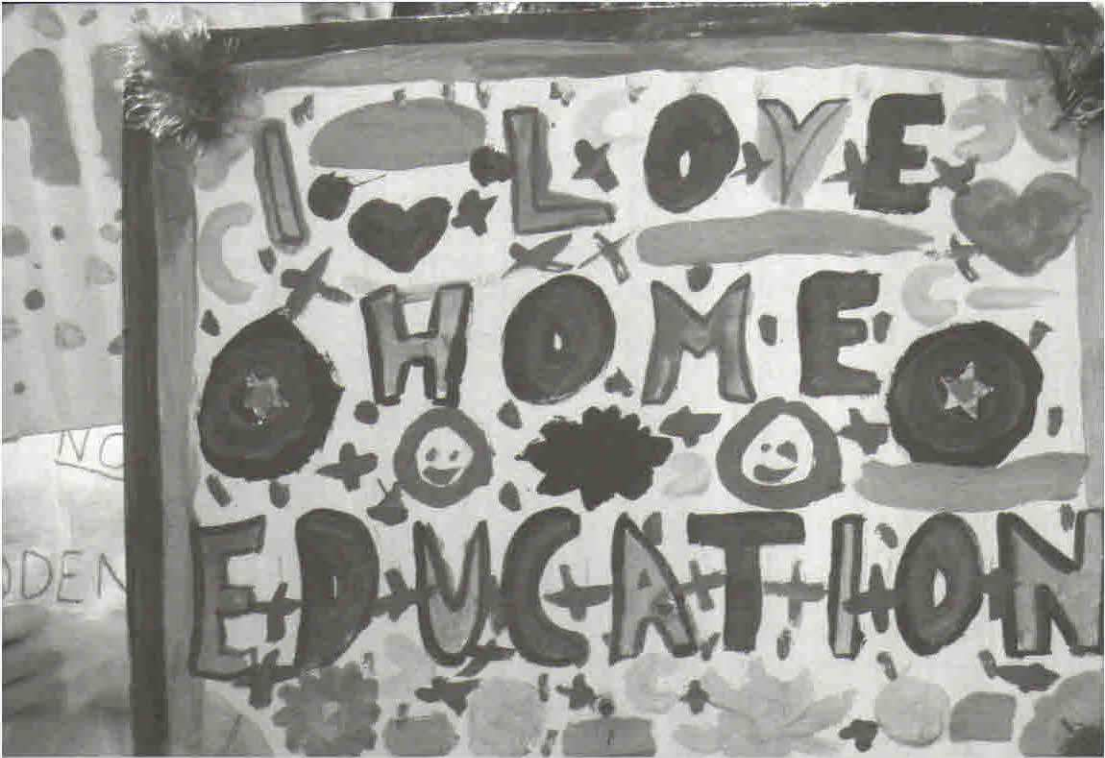 I LOVE
HOME
EDUCATION
NO